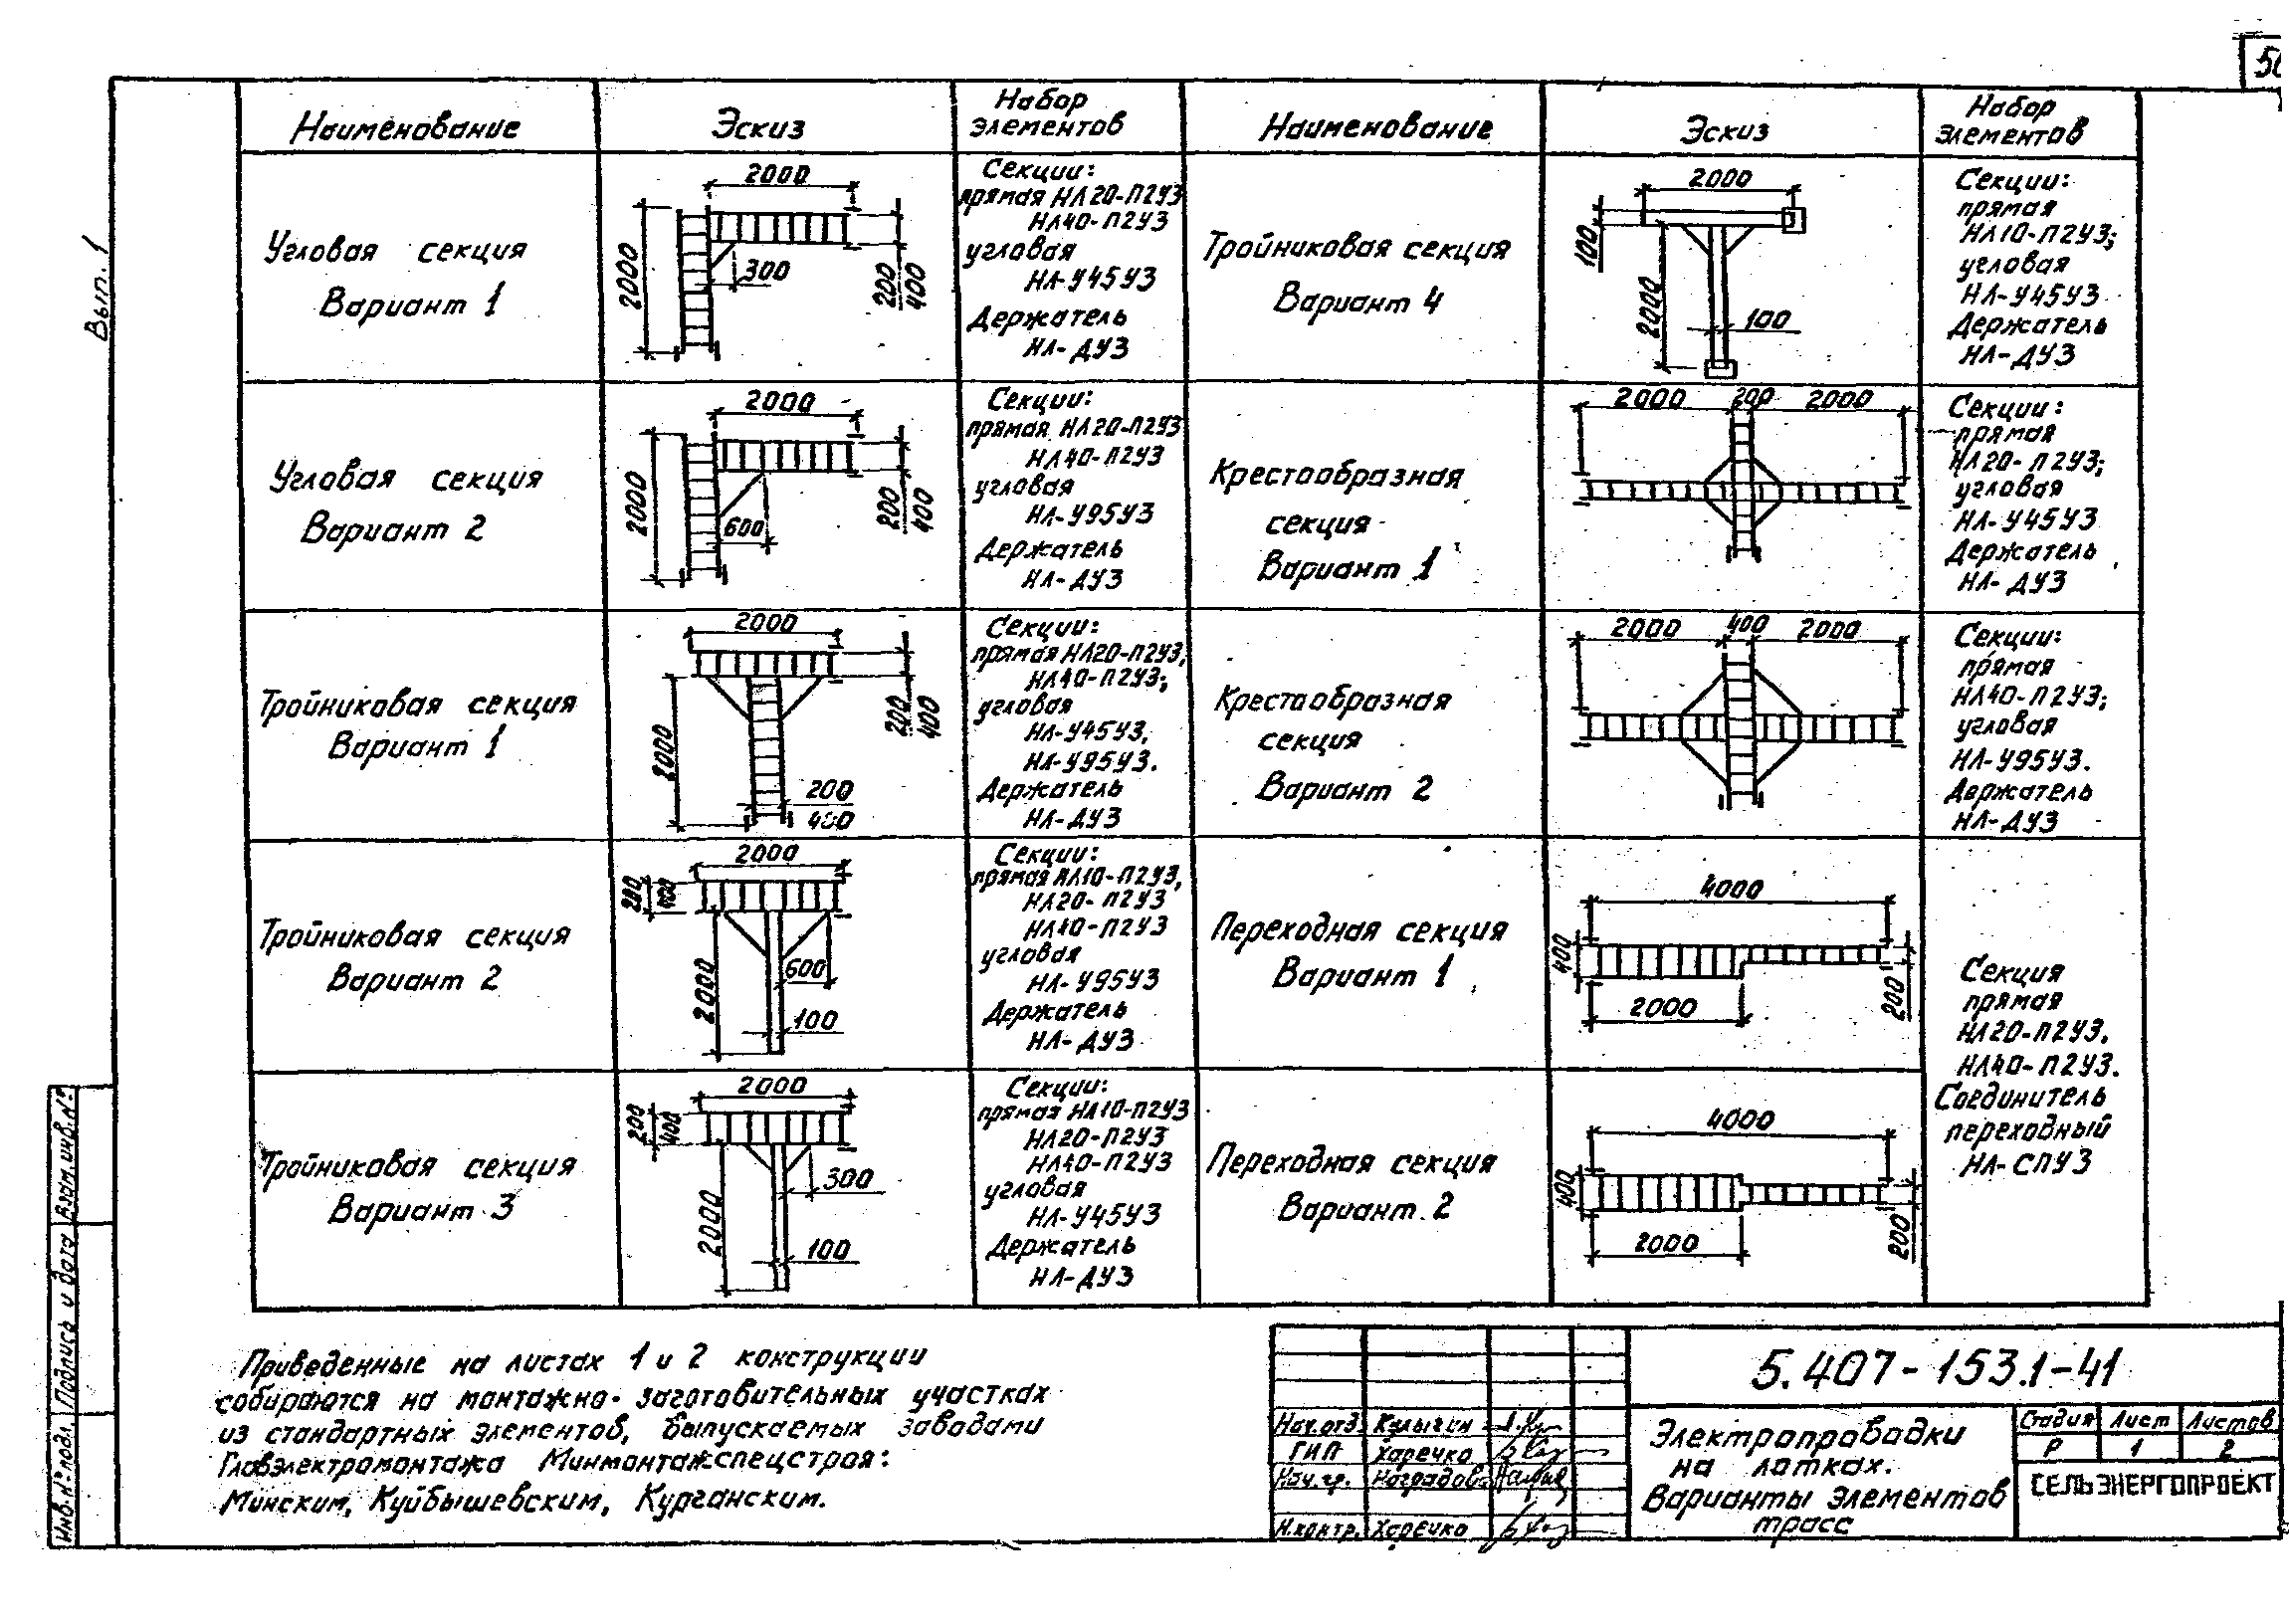 Вып. 1
Наименование
Эскиз
Набор
элементов
Наименование
Эскиз
Набор
элементов
Угловая секция
Вариант 1
2000
2000
300
200
400
Секции:
прямая НЛ20-П2У3
НЛ40-П2У3
угловая
НЛ-У45У3
Держатель
НЛ-ДУ3
Тройниковая секция
Вариант 4
2000
100
2000
100
Секции:
прямая
НЛ10-П2У3;
угловая
НЛ-У45У3
Держатель
НЛ-ДУ3
Угловая секция
Вариант 2
2000
2000
600
200
400
Секции:
прямая НЛ20-П2У3
НЛ40-П2У3
угловая
НЛ-У95У3
Держатель
НЛ-ДУ3
Крестообразная
секция
Вариант 1
2000 200 2000
Секции:
прямая
НЛ20-П2У3;
угловая
НЛ-У45У3
Держатель
НЛ-ДУ3
Тройниковая секция
Вариант 1
2000
2000
200
400
200
400
Секции:
прямая НЛ20-П2У3,
НЛ40-П2У3;
угловая
НЛ-У45У3,
НЛ-У95У3.
Держатель
НЛ-ДУ3
Крестообразная
секция
Вариант 2
2000 400 2000
Секции:
прямая
НЛ40-П2У3;
угловая
НЛ-У95У3.
Держатель
НЛ-ДУ3
Тройниковая секция
Вариант 2
2000
200
400
2000
600
100
Секции:
прямая НЛ10-П2У3,
НЛ20-П2У3
НЛ40-П2У3
угловая
НЛ-У95У3
Держатель
НЛ-ДУ3
Переходная секция
Вариант 1
4000
400
2000
200
Секция
прямая
НЛ20-П2У3.
НЛ40-П2У3.
Соединитель
переходный
НЛ-СПУ3
Тройниковая секция
Вариант 3
2000
200
400
2000
300
100
Секции:
прямая НЛ10-П2У3
НЛ20-П2У3
НЛ40-П2У3
угловая
НЛ-У45У3
Держатель
НЛ-ДУ3
Переходная секция
Вариант 2
4000
400
2000
200
Приведенные на листах 1 и 2 конструкции
собираются на монтажно-заготовительных участках
из стандартных элементов, выпускаемых заводами
Главэлектромонтажа Минмонтажспецстроя:
Минским, Куйбышевским, Курганским.
Инв.№ подл. Подпись и дата Взам.инв.№
5.407-153.1-41
Нач.отд.
ГИП Харечко
Нач.гр.
Н.контр. Харечко
Электропроводки
на лотках.
Варианты элементов
трасс
Стадия Лист Листов
Р 1 2
СЕЛЬЭНЕРГОПРОЕКТ